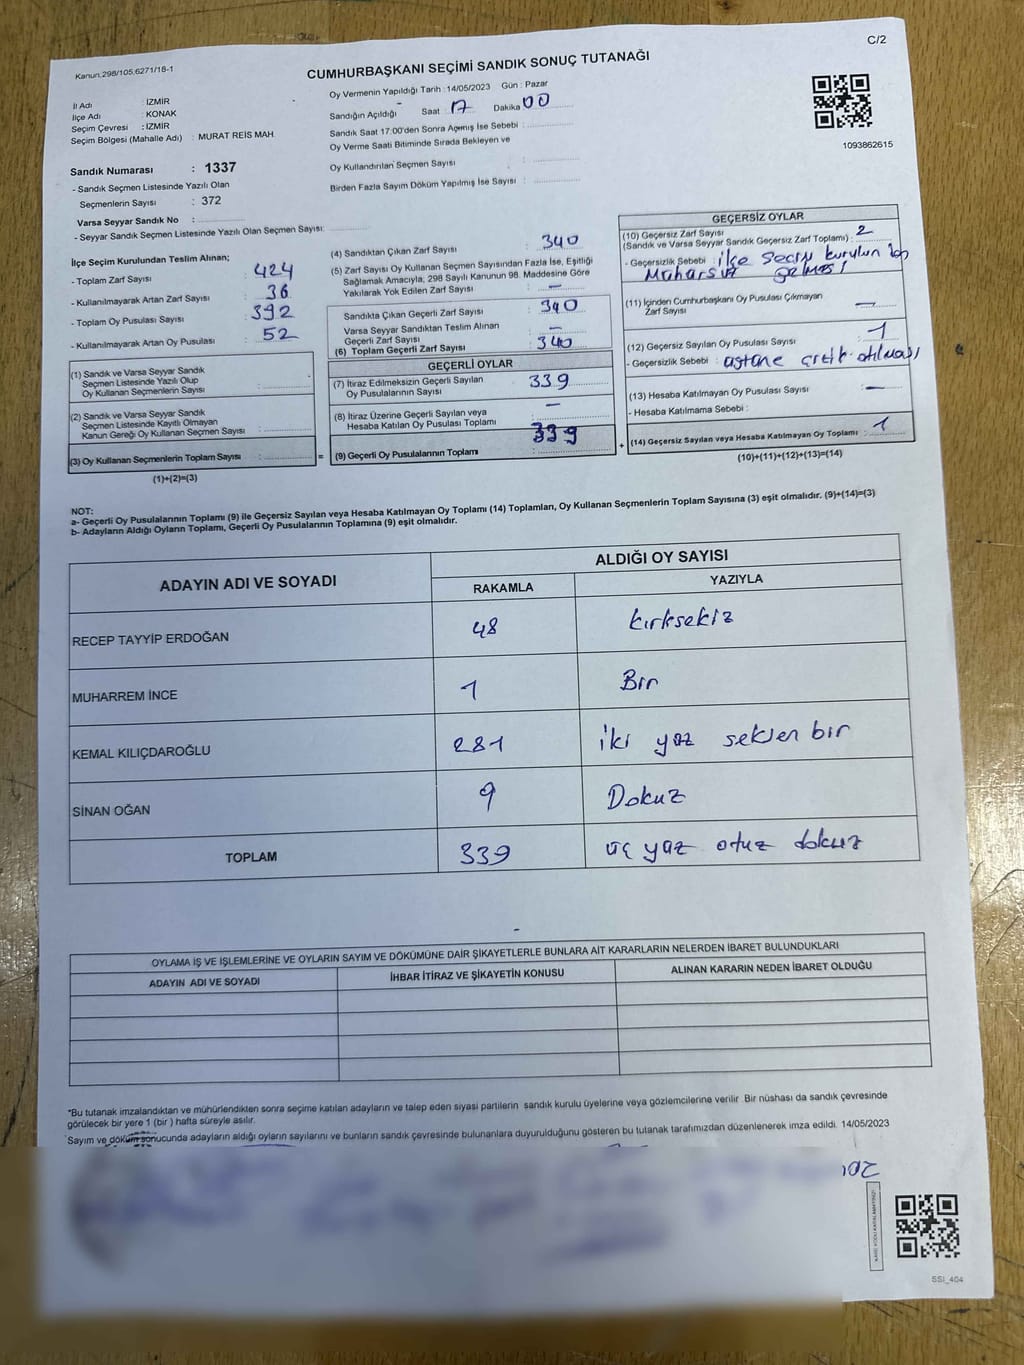 C/2
Kanun.298/105.6271/18-1
CUMHURBAŞKANI SEÇİMİ SANDIK SONUÇ TUTANAĞI
İl Adı : İZMİR
İlçe Adı : KONAK
Seçim Çevresi : İZMİR
Seçim Bölgesi (Mahalle Adı) : MURAT REİS MAH.
Sandık Numarası : 1337
- Sandık Seçmen Listesinde Yazılı Olan
Seçmenlerin Sayısı : 372
Varsa Seyyar Sandık No :
- Seyyar Sandık Seçmen Listesinde Yazılı Olan Seçmen Sayısı:
Oy Vermenin Yapıldığı Tarih : 14/05/2023 Gün : Pazar
Sandığın Açıldığı Saat : 17 Dakika : 00
Sandık Saat 17:00'den Sonra Açmış İse Sebebi :
Oy Verme Saati Bitiminde Sırada Bekleyen ve
Oy Kullandırılan Seçmen Sayısı :
Birden Fazla Sayım Döküm Yapılmış İse Sayısı :
1093862615
İlçe Seçim Kurulundan Teslim Alınan;
- Toplam Zarf Sayısı : 424
- Kullanılmayarak Artan Zarf Sayısı : 36
- Toplam Oy Pusulası Sayısı : 392
- Kullanılmayarak Artan Oy Pusulası : 52
(1) Sandık ve Varsa Seyyar Sandık
Seçmen Listesinde Yazılı Olup
Oy Kullanan Seçmenlerin Sayısı :
(2) Sandık ve Varsa Seyyar Sandık
Seçmen Listesinde Kayıtlı Olmayan
Kanun Gereği Oy Kullanan Seçmen Sayısı :
(3) Oy Kullanan Seçmenlerin Toplam Sayısı : =
(1)+(2)=(3)
(4) Sandıktan Çıkan Zarf Sayısı : 340
(5) Zarf Sayısı Oy Kullanan Seçmen Sayısından Fazla İse, Eşitliği
Sağlamak Amacıyla, 298 Sayılı Kanunun 98. Maddesine Göre
Yakılarak Yok Edilen Zarf Sayısı : —
Sandıkta Çıkan Geçerli Zarf Sayısı : 340
Varsa Seyyar Sandıktan Teslim Alınan
Geçerli Zarf Sayısı : —
(6) Toplam Geçerli Zarf Sayısı : 340
GEÇERLİ OYLAR
(7) İtiraz Edilmeksizin Geçerli Sayılan
Oy Pusulalarının Sayısı : 339
(8) İtiraz Üzerine Geçerli Sayılan veya
Hesaba Katılan Oy Pusulası Toplamı : —
(9) Geçerli Oy Pusulalarının Toplamı : 339 +
GEÇERSİZ OYLAR
(10) Geçersiz Zarf Sayısı
(Sandık ve Varsa Seyyar Sandık Geçersiz Zarf Toplamı) : 2
- Geçersizlik Sebebi : ilçe seçim kurulun
gelmesi
(11) İçinden Cumhurbaşkanı Oy Pusulası Çıkmayan
Zarf Sayısı : —
(12) Geçersiz Sayılan Oy Pusulası Sayısı : 1
- Geçersizlik Sebebi : üstüne çizik atılması
(13) Hesaba Katılmayan Oy Pusulası Sayısı : —
- Hesaba Katılmama Sebebi :
(14) Geçersiz Sayılan veya Hesaba Katılmayan Oy Toplamı : 1
(10)+(11)+(12)+(13)=(14)
NOT:
a- Geçerli Oy Pusulalarının Toplamı (9) ile Geçersiz Sayılan veya Hesaba Katılmayan Oy Toplamı (14) Toplamları, Oy Kullanan Seçmenlerin Toplam Sayısına (3) eşit olmalıdır. (9)+(14)=(3)
b- Adayların Aldığı Oyların Toplamı, Geçerli Oy Pusulalarının Toplamına (9) eşit olmalıdır.
ADAYIN ADI VE SOYADI ALDIĞI OY SAYISI
RAKAMLA YAZIYLA
RECEP TAYYİP ERDOĞAN 48 kırksekiz
MUHARREM İNCE 1 Bir
KEMAL KILIÇDAROĞLU 281 iki yüz seksen bir
SİNAN OĞAN 9 Dokuz
TOPLAM 339 üç yüz otuz dokuz
OYLAMA İŞ VE İŞLEMLERİNE VE OYLARIN SAYIM VE DÖKÜMÜNE DAİR ŞİKAYETLERLE BUNLARA AİT KARARLARIN NELERDEN İBARET BULUNDUKLARI
ADAYIN ADI VE SOYADI İHBAR İTİRAZ VE ŞİKAYETİN KONUSU ALINAN KARARIN NEDEN İBARET OLDUĞU
*Bu tutanak imzalandıktan ve mühürlendikten sonra seçime katılan adayların ve talep eden siyasi partilerin sandık kurulu üyelerine veya gözlemcilerine verilir Bir nüshası da sandık çevresinde
görülecek bir yere 1 (bir ) hafta süreyle asılır.
Sayım ve döküm sonucunda adayların aldığı oyların sayılarını ve bunların sandık çevresinde bulunanlara duyurulduğunu gösteren bu tutanak tarafımızdan düzenlenerek imza edildi. 14/05/2023
SSI_404